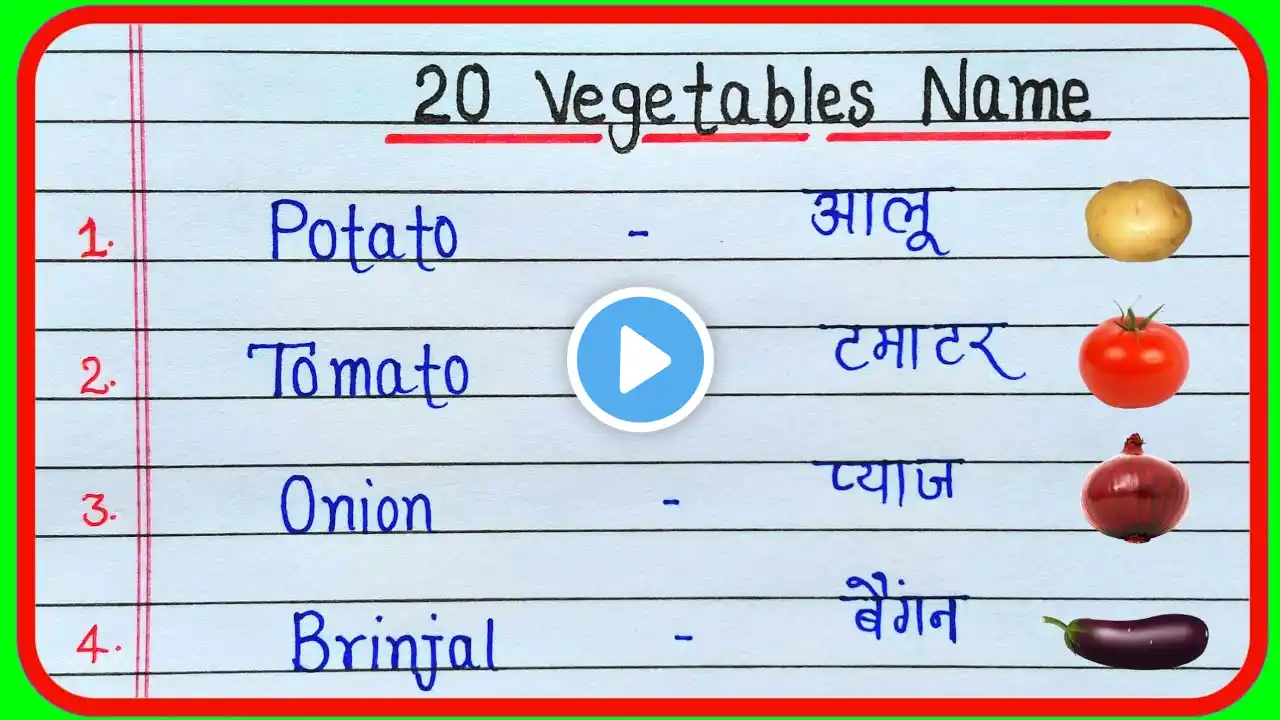 20 Vegetables Name
1. Potato - आलू
2. Tomato टमाटर
3. Onion - प्याज
4. Brinjal - बैंगन